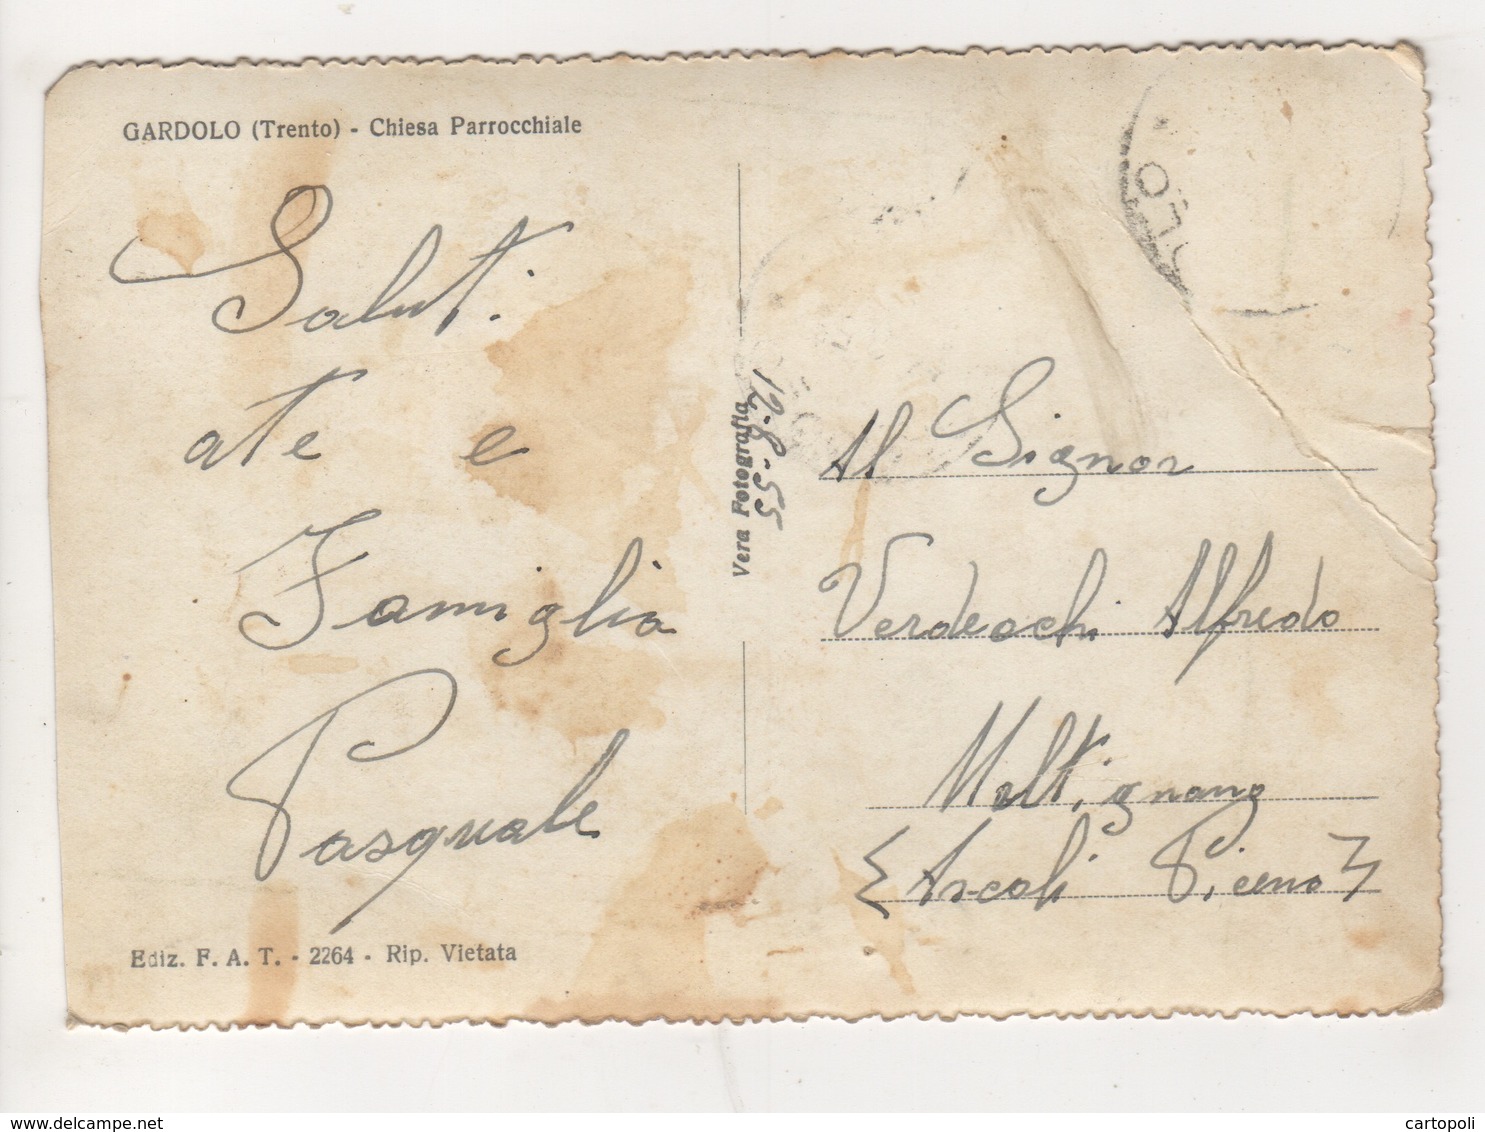 GARDOLO (Trento) - Chiesa Parrocchiale
Saluti
a te e
Famiglia
Pasquale
Ediz. F. A. T. - 2264 - Rip. Vietata
Vera Fotografia
12-8-55
Al Signor
Verdecchi Alfredo
Maltignano
(Ascoli Piceno)
www.delcampe.net
cartopoli